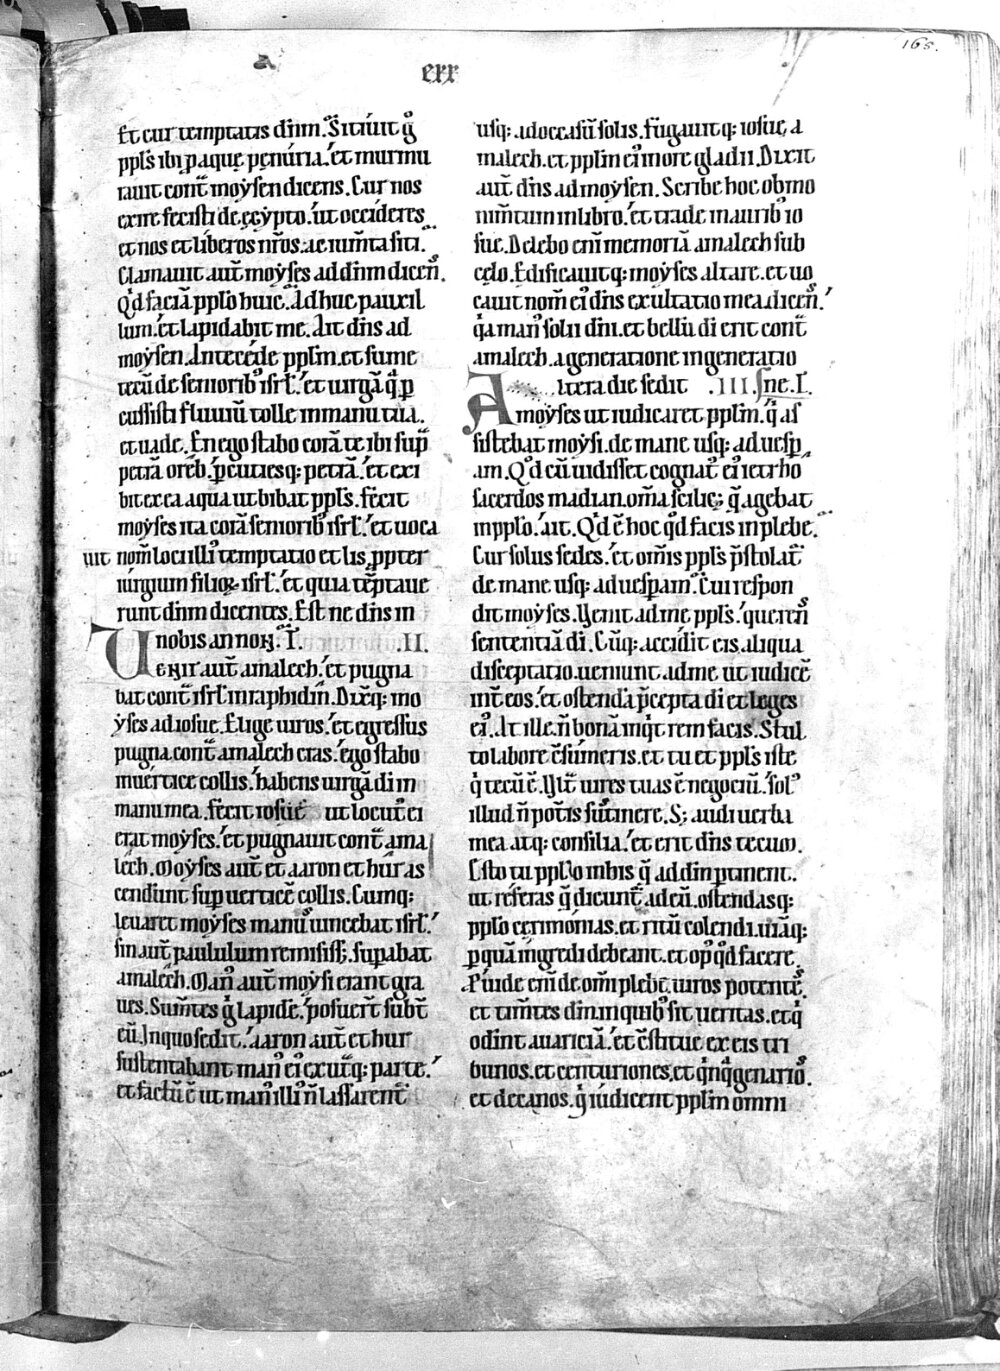 165.
exr
Et cur temptatis dnm. Sitiuit g̊
ppl's ibi p̱ aquę pęnuria. et murmu
rauit cont̃ moẏsen dicens. Cur nos
exire fecisti de ęgẏpto. ut occideres
et nos et liberos nr̃os. ac iumta siti.
Clamauit aut̃ moẏses ad dnm dicen̄.
Qd̓ faciā ppl̓o huic. Adhuc pauxil
lum. et lapidabit me. Ait dn̄s ad
moẏsen. Antecede ppl̓m. et sume
tecū de seniorib᷒ isrl̓. et uirgā qͣ p̱
cussisti fluuiū tolle in manu tua.
et uade. En ego stabo corā te ibi sup̱
petrā oreb. p̱cutiesq: petrā. et exi
bit ex ea aqua ut bibat ppl's. Fecit
moẏses ita corā seniorib᷒ isrl̓. et uoca
uit nom̄ loci illi᷒ temptatio et lis. ppter
iurgium filioꝝ isrl̓. et quia tēptaue
runt dnm dicentes. Est ne dn̄s in
nobis an non. I. .II.
Uenit aut̃ amalech. et pugna
bat cont̃ isrl̓ in raphidim̄. Dixq: mo
ẏses ad iosue. Elige uiros. et egressus
pugna cont̃ amalech cras. ego stabo
in uertice collis. habens uirgā di in
manu mea. Fecit iosue ut locut᷒ ei
erat moẏses. et pugnauit cont̃ ama
lech. Moẏses aut̃ et aaron et hur as
cendunt sup̱ uerticē collis. Cumq:
leuaret moẏses man᷒ uincebat isrl̓.
sin aut̃ paululum remisiss; sup̱abat
amalech. Man᷒ aut̃ moẏsi erant gra
ues. Sumt̄es g̊ lapidē. posuer̄t subt̃
eū. In quo sedit. aaron aut̃ et hur
sustentabant man᷒ ei᷒ ex utͣq: parte.
et factū ē ut man᷒ illi᷒ n̄ lassarent᷑
usq: ad occasū solis. Fugauitq: iosue a
malech. et ppl̓m ei᷒ in ore gladii. Dixit
aut̃ dn̄s ad moẏsen. Scribe hoc ob mo
nim̄tum in libro. et trade in aurib᷒ io
sue. Delebo eni̅ memoriā amalech sub
cęlo. Edificauitq: moẏses altare. et uo
cauit nom̄ ei᷒ dn̄s exultatio mea dicen̄.
qͣ man᷒ solii dn̄i. et bellū di erit cont̃
amalech. a generatione in generatio
ne. I. .III.
Altera die sedit
moẏses ut iudicaret ppl̓m. q̓ as
sistebat moẏsi. de mane usq: ad uesp̱
am. Qd̓ cū uidisset cognat᷒ ei᷒ ietrho
sacerdos madian. om̄a scilic; q̄ agebat
in ppl̓o. ait. Qd̓ ē hoc qd̓ facis in plebe.
Cur solus sedes. et om̄is ppl's p̄stolat᷑
de mane usq: ad uesp̱am. Cui respon
dit moẏses. Venit ad me ppl's. querēs
sententiā di. Cūq: acciderit eis aliqua
disceptatio. ueniunt ad me ut iudicē
int̃ eos. et ostendā p̄cepta di et leges
ei᷒. At ille. n̄ bonā inqͥt rem facis. Stul
to labore c̄sumeris. et tu et ppl's iste
qͥ tecū ē. Vlt̃ uires tuas ē negociū. sol᷒
illud n̄ pot̓is sustinere. S; audi uerba
mea atq: consilia. et erit dn̄s tecum.
Esto tu ppl̓o in his q̄ ad dm̄ ptinent.
ut referas q̄ dicunt᷑ ad eū. ostendasq:
ppl̓o cęrimonias. et ritū colendi. uiāq:
p̱ quā ingredi debeant. et op᷒ qd̓ facere.
Puide eni̅ de omi plebe. uiros potentes.
et tim̄tes dm̄. in quib᷒ sit ueritas. et qͥ
odint auariciā. et c̄stitue ex eis tri
bunos. et centuriones. et qͥnqͣgenarios.
et decanos. qͥ iudicent ppl̓m omni